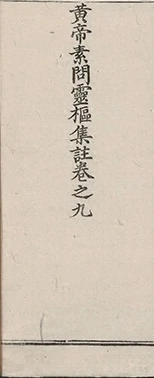 黃帝素問靈樞集註卷之九